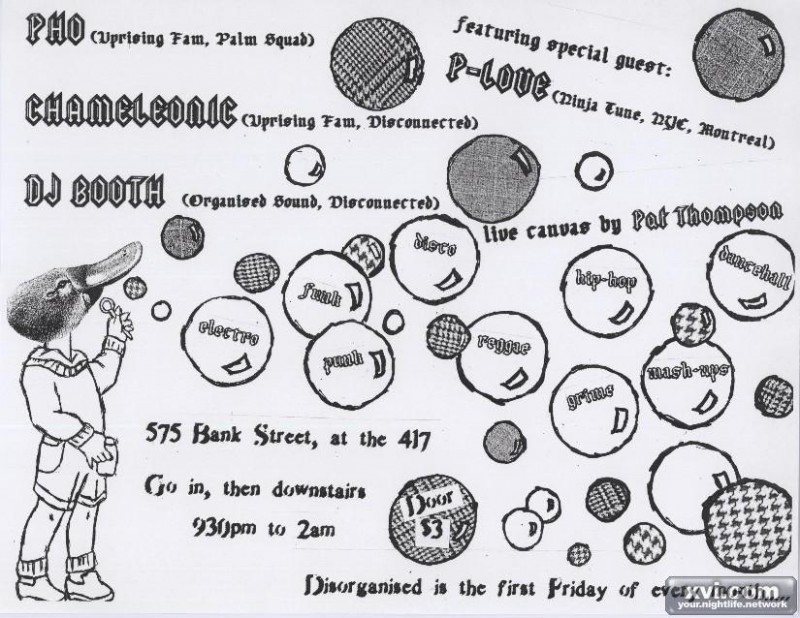 PHO (Uprising Fam, Palm Squad)
featuring special guest:
P-LOVE (Ninja Tune, NYC, Montreal)
CHAMELEONIC (Uprising Fam, Disconnected)
DJ BOOTH (Organised Sound, Disconnected)
live canvas by Pat Thompson
disco
dancehall
hip-hop
funk
electro
punk
reggae
mash-ups
grime
575 Bank Street, at the 417
Go in, then downstairs
930pm to 2am
Door
$3
Disorganised is the first Friday of every
xvi.com
your.nightlife.network